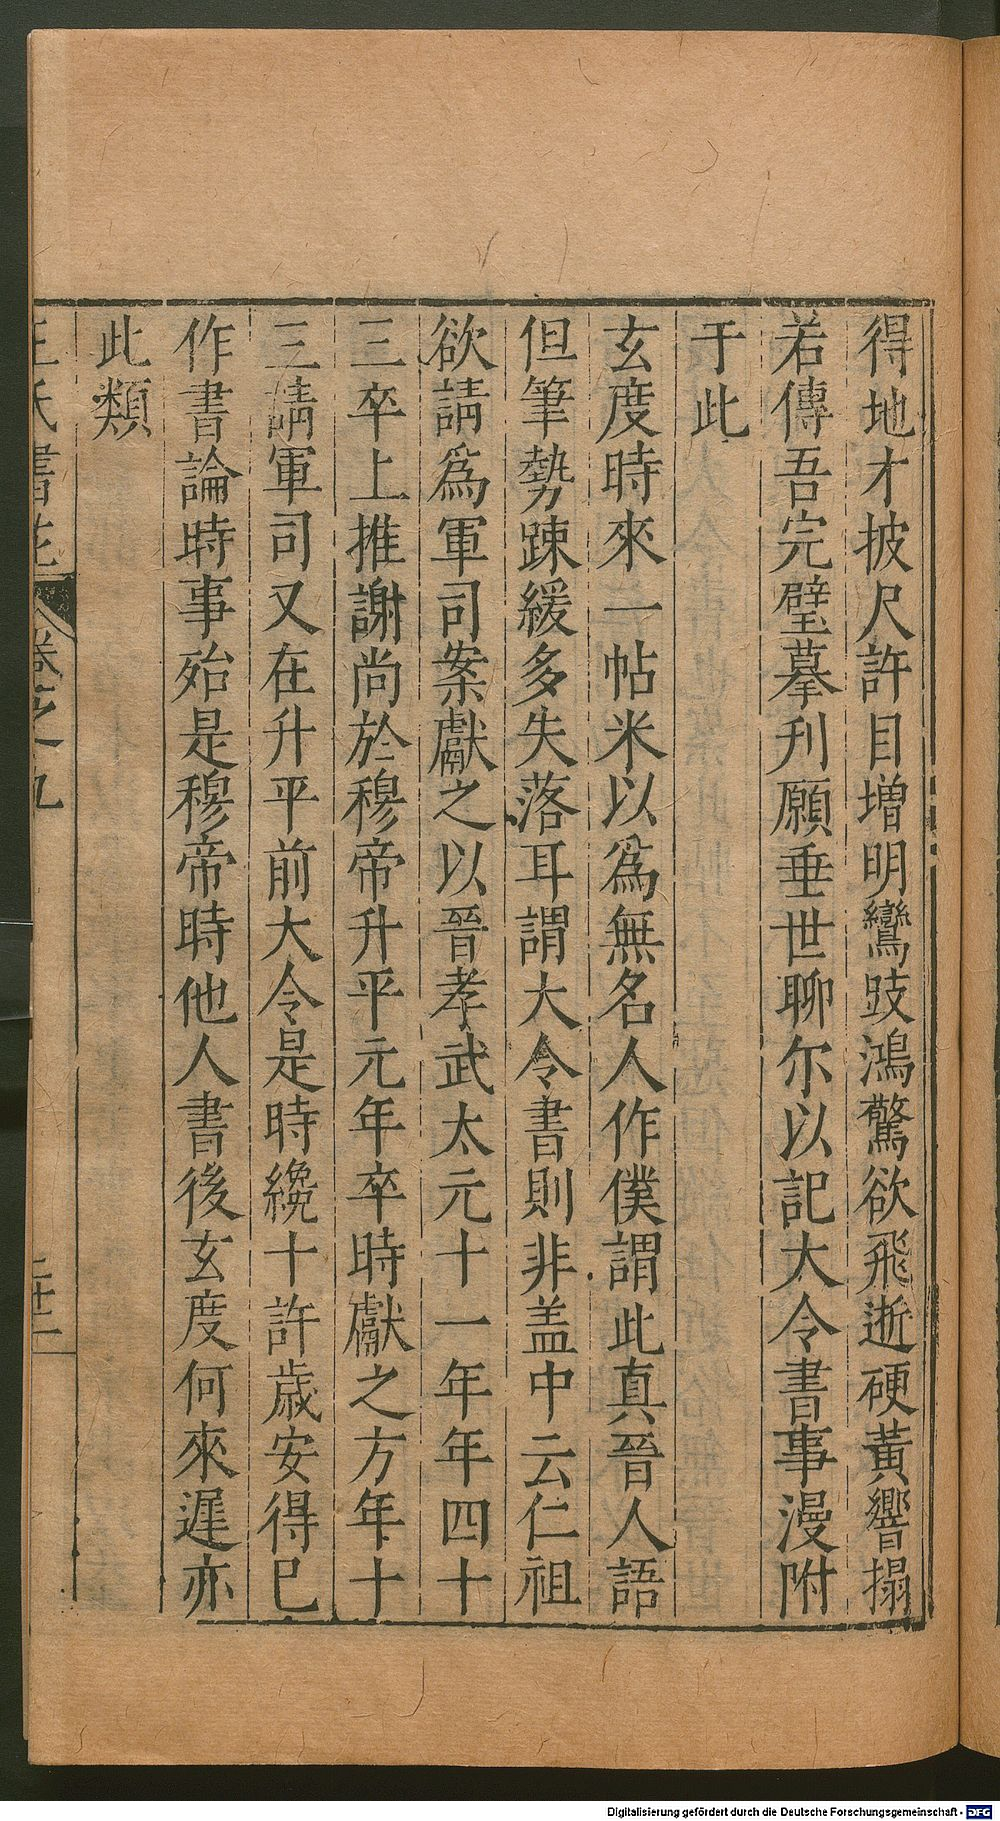 得地才披尺許目增明鸞跂鴻驚欲飛逝硬黃響搨
若傳吾完璧摹刋願垂世聊尔以記大令書事漫附
于此
玄度時來一帖米以爲無名人作僕謂此真晉人語
但筆勢踈緩多失落耳謂大令書則非盖中云仁祖
欲請爲軍司案獻之以晉孝武太元十一年年四十
三卒上推謝尚於穆帝升平元年卒時獻之方年十
三請軍司又在升平前大令是時纔十許歲安得巳
作書論時事殆是穆帝時他人書後玄度何來遲亦
此類
王氏書苑 卷之九
Digitalisierung gefördert durch die Deutsche Forschungsgemeinschaft - DFG